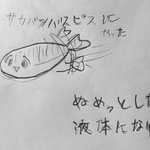 サカバンバスピスに
なった
ぬめっとした
液体にな